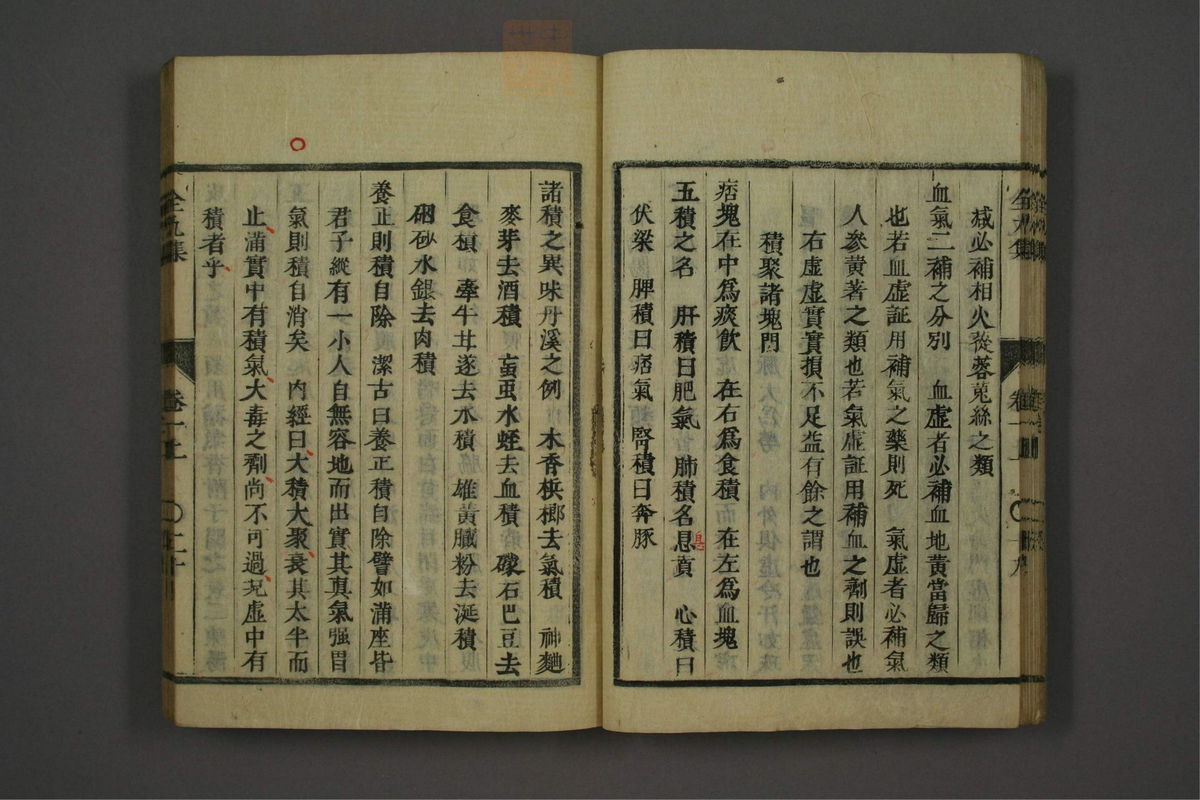 减必補相火蓯蓉菟絲之類
血氣二補之分別　血虛者必補血地黃當歸之類
也若血虛証用補氣之藥則死　氣虛者必補氣
人參黃耆之類也若氣虛証用補血之劑則誤也
右虛虛實實損不足益有餘之謂也
積聚諸塊門
痞塊在中爲痰飮　在右爲食積　在左爲血塊
五積之名　肝積曰肥氣　肺積名息賁　心積曰
息
伏梁　脾積曰痞氣　腎積曰奔豚
全九集　卷一上　十九
諸積之異味丹溪之例　木香梹榔去氣積　神麯
麥芽去酒積　䖟虫水蛭去血積　礞石巴豆去
食積　牽牛甘遂去水積　雄黃膩粉去涎積
硇砂水銀去肉積
養正則積自除　潔古曰養正積自除譬如滿座皆
君子縱有一小人自無容地而出實其真氣强胃
氣則積自消矣　內經曰大積大聚衰其太半而
止滿實中有積氣大毒之劑尚不可過况虛中有
積者乎
全九集　卷一上　二十